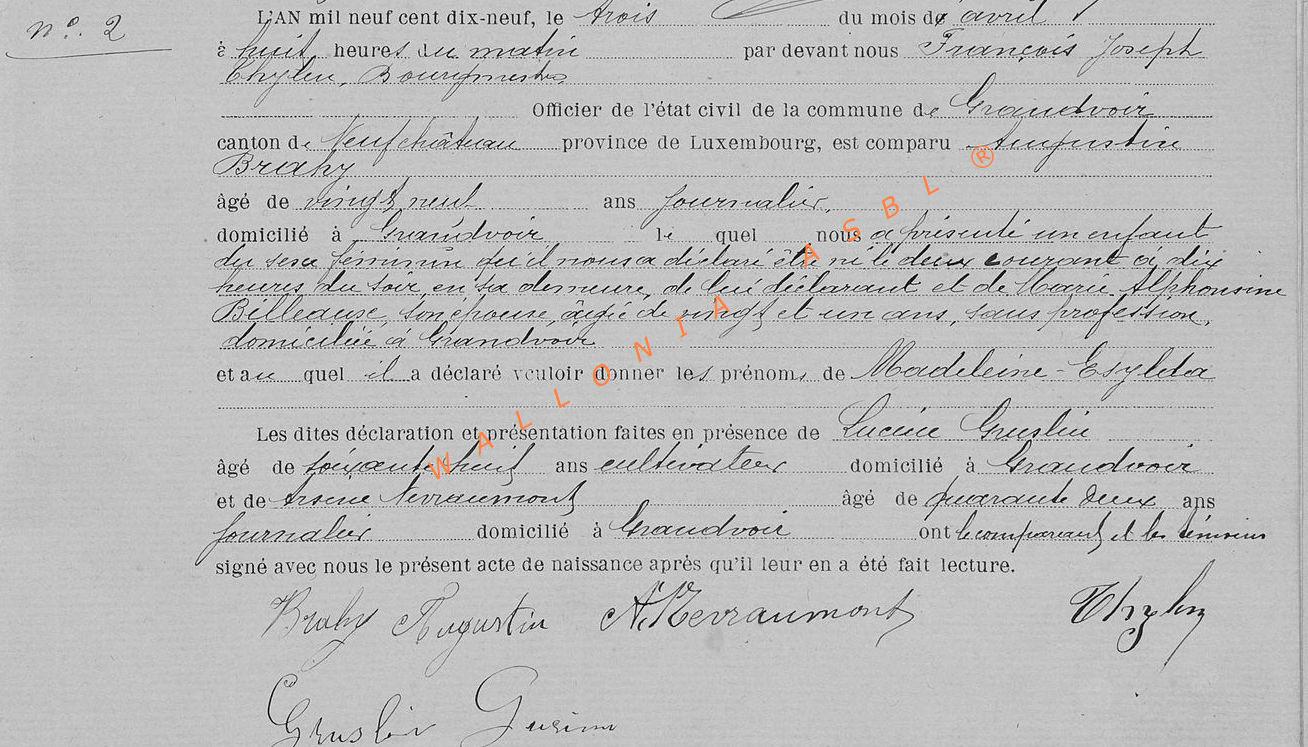 n°. 2
L'AN mil neuf cent dix-neuf, le trois du mois de avril
à huit heures du matin par devant nous François Joseph
Thylen, Bourgmestre
Officier de l'état civil de la commune de Grandvoir
canton de Neufchâteau province de Luxembourg, est comparu Augustin
Brahy
âgé de vingt neuf ans journalier,
domicilié à Grandvoir le quel nous a présenté un enfant
du sexe féminin qu'il nous a déclaré être né le deux courant à dix
heures du soir, en sa demeure, de lui déclarant et de Marie Alphonsine
Billeause, son épouse, âgée de vingt et un ans, sans profession,
domiciliée à Grandvoir
et au quel il a déclaré vouloir donner les prénoms de Madeleine-Esylda
Les dites déclaration et présentation faites en présence de Gruslin
âgé de soixante huit ans cultivateur domicilié à Grandvoir
et de Arsène Nevraumont âgé de quarante deux ans
journalier domicilié à Grandvoir ont le comparant et les témoins
signé avec nous le présent acte de naissance après qu'il leur en a été fait lecture.
Brahy Augustin A. Nevraumont Thylen
Gruslin
WALLONIA ASBL ®